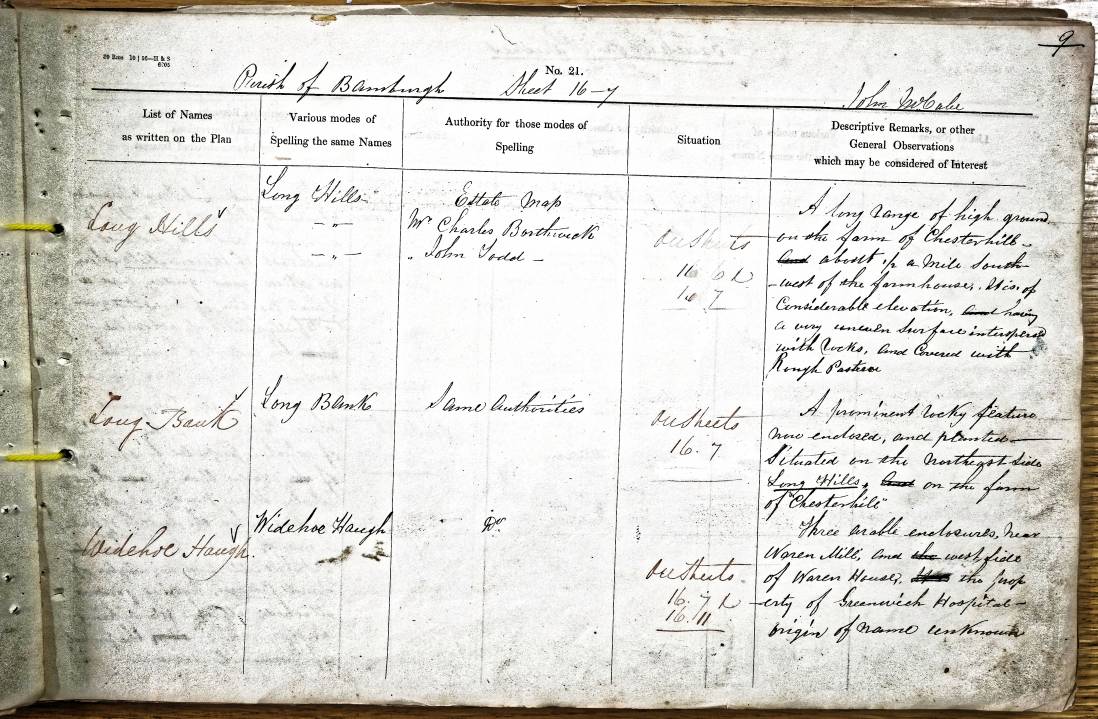 9
No. 21.
Parish of Bamburgh Sheet 16-7 John McCabe
List of Names
as written on the Plan
Various modes of
Spelling the same Names
Authority for those modes of
Spelling
Situation
Descriptive Remarks, or other
General Observations
which may be considered of Interest
Long Hills
Long Hills
– " –
– " –
Estate Map
Mr Charles Borthwick
" John Todd –
On Sheets
16 6 &
16 7
A long range of high ground
on the farm of Chesterhill –
and about ½ a mile South
-west of the farmhouse. It is of
Considerable elevation, and having
a very uneven Surface interspersed
with rocks, and Covered with
Rough Pasture
Long Bank
Long Bank
Same Authorities
On Sheets
16. 7
A prominent rocky feature
now enclosed, and planted
Situated on the Northeast Side
Long Hills, and on the farm
of "Chesterhill"
Widehoe Haugh.
Widehoe Haugh
Do.
On Sheets.
16. 7 &
16. 11
Three arable enclosures, near
Waren Mill, and the west side
of Waren House, the prop
-erty of Greenwich Hospital –
origin of name unknown